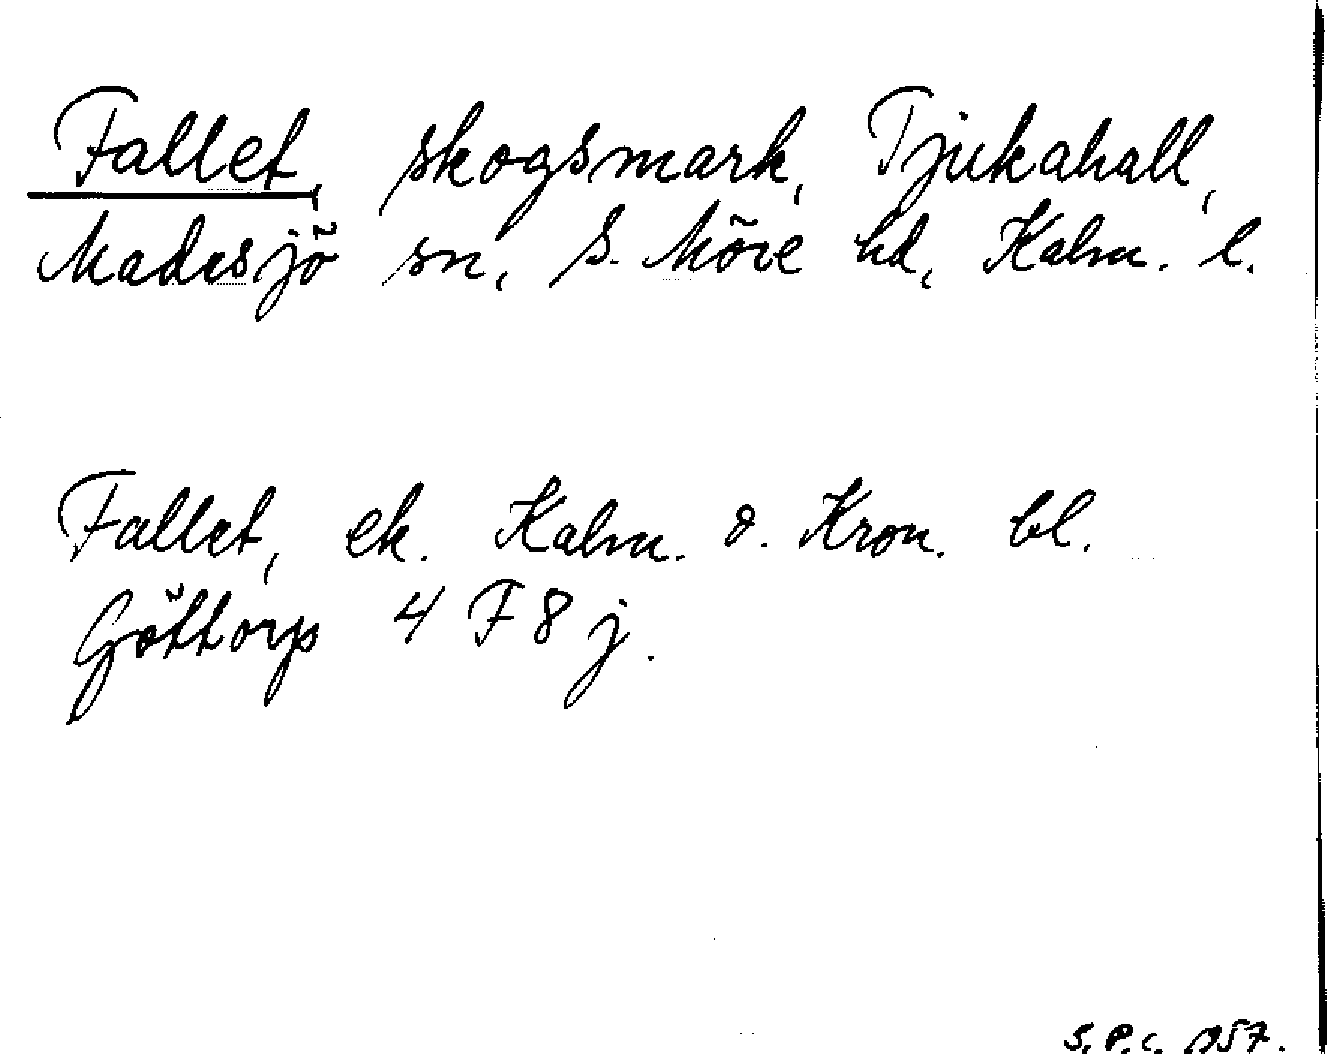 Fallet, skogsmark, Tjukahall,
Madesjö sn, S. Möre hd, Kalm. l.
Fallet, ek. Kalm. o. Kron. bl.
Göttorp 4 F 8 j.
S. P. C. 1957.